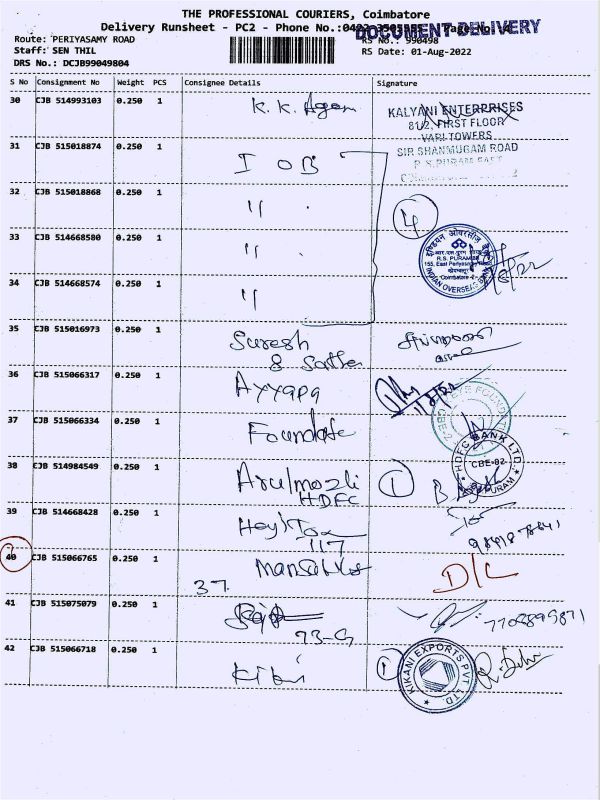 THE PROFESSIONAL COURIERS, Coimbatore
Delivery Runsheet - PC2 - Phone No.:0422
DOCUMENT DELIVERY
Route: PERIYASAMY ROAD
RS No.: 990498
Staff: SEN THIL
RS Date: 01-Aug-2022
DRS No.: DCJB99049804
S No Consignment No Weight PCS Consignee Details Signature
30 CJB 514993103 0.250 1 K. K. Agen
KALYANI ENTERPRISES
81/2, FIRST FLOOR
VARI TOWERS
SIR SHANMUGAM ROAD
31 CJB 515018874 0.250 1 I O B
32 CJB 515018868 0.250 1 "
4
33 CJB 514668580 0.250 1 "
इंडियन ओवरसीज़ बैंक
R.S. PURAM
155, East Periyasamy Road
Coimbatore
INDIAN OVERSEAS BANK
34 CJB 514668574 0.250 1 "
35 CJB 515016973 0.250 1 Suresh
&
36 CJB 515066317 0.250 1 Ayyapa
37 CJB 515066334 0.250 1 Foundate
HDFC BANK LTD.
CBE-02
PURAM
38 CJB 514984549 0.250 1 Arulmozli
HDFC
1
39 CJB 514668428 0.250 1
117
40 CJB 515066765 0.250 1
37
D/L
41 CJB 515075079 0.250 1
93-G
7708899871
42 CJB 515066718 0.250 1 Kikani
1
KIKANI EXPORTS PVT LTD